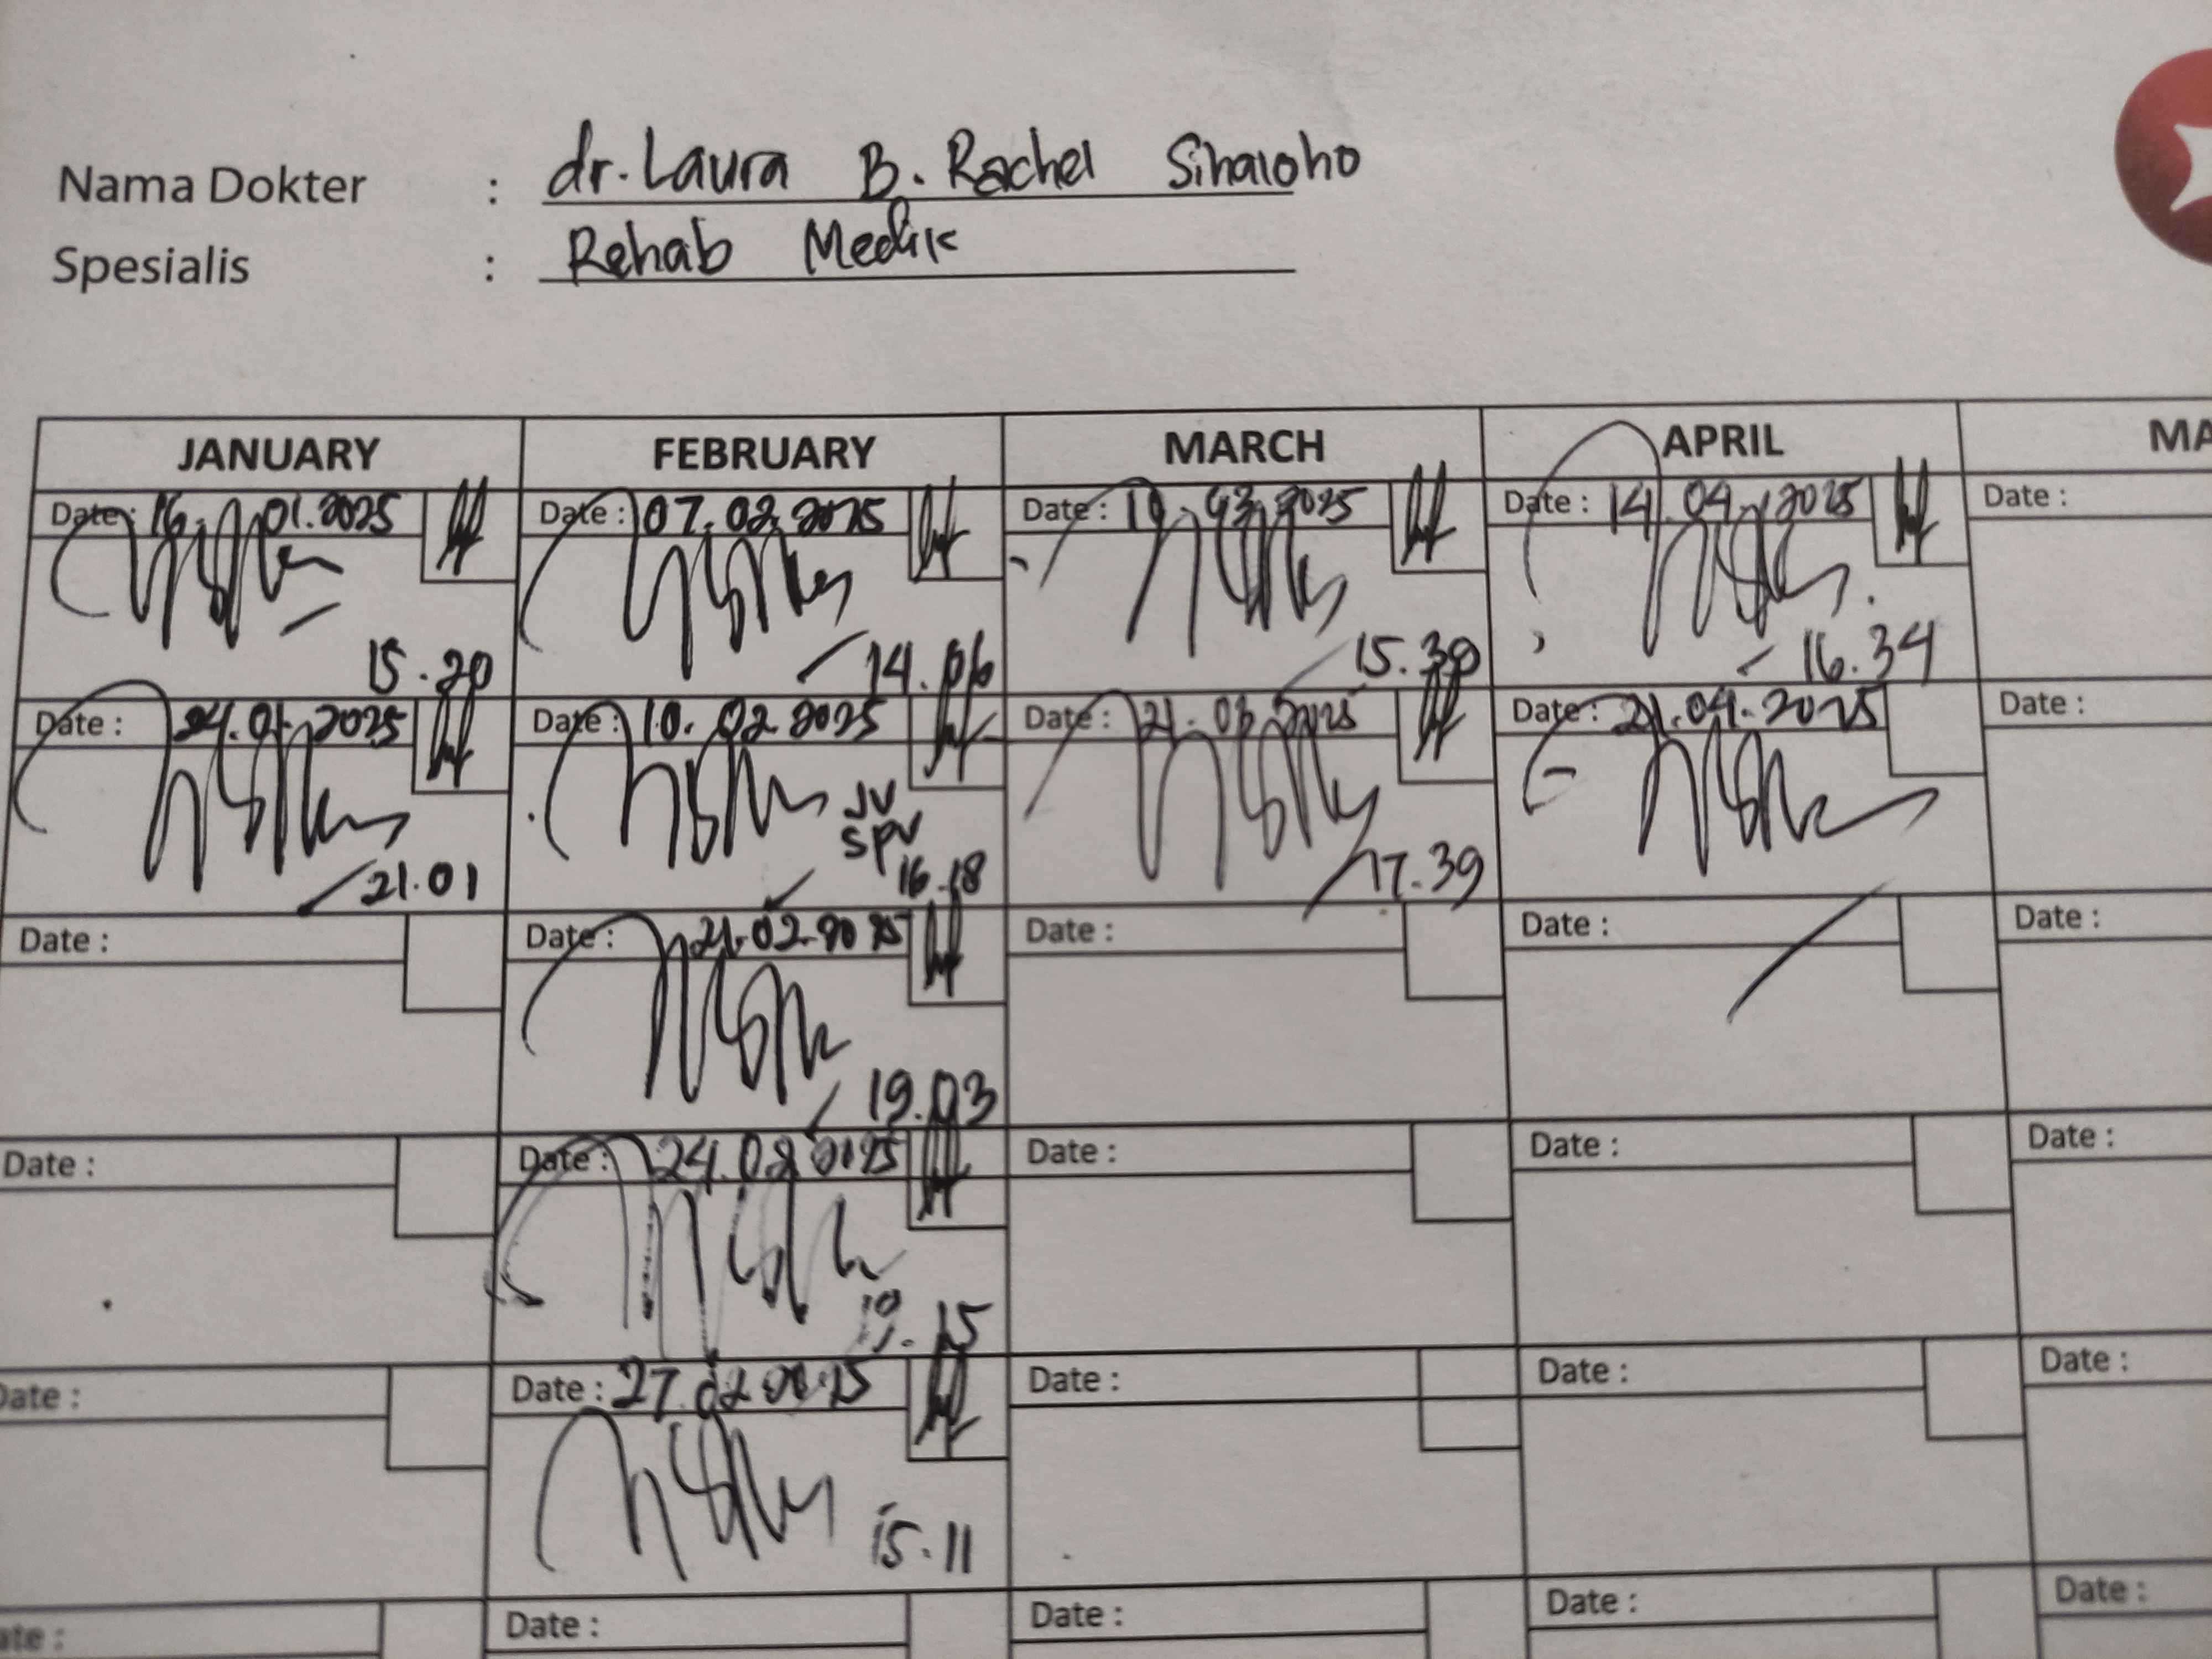 Nama Dokter : dr. Laura B. Rachel Sihaloho
Spesialis : Rehab Medik
JANUARY FEBRUARY MARCH APRIL MA
Date: 16. 01.2025 Date: 07.02.2025 Date: 10.03.2025 Date: 14.04.2025 Date:
15.20 14.06 15.30 16.34
Date: 24.01.2025 Date: 10.02.2025 Date: 21.03.2025 Date: 21.04.2025 Date:
JV
SPV
21.01 16.18 17.39
Date: Date: 21.02.2025 Date: Date: Date:
19.03
Date: Date: 24.02.2025 Date: Date: Date:
19.15
Date: Date: 27.02.2025 Date: Date: Date:
15.11
ate: Date: Date: Date: Date: